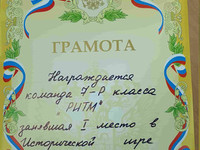 ГРАМОТА
Награждается
команда 7-Р класса
"РИТМ"
занявшая I место в
Исторической игре